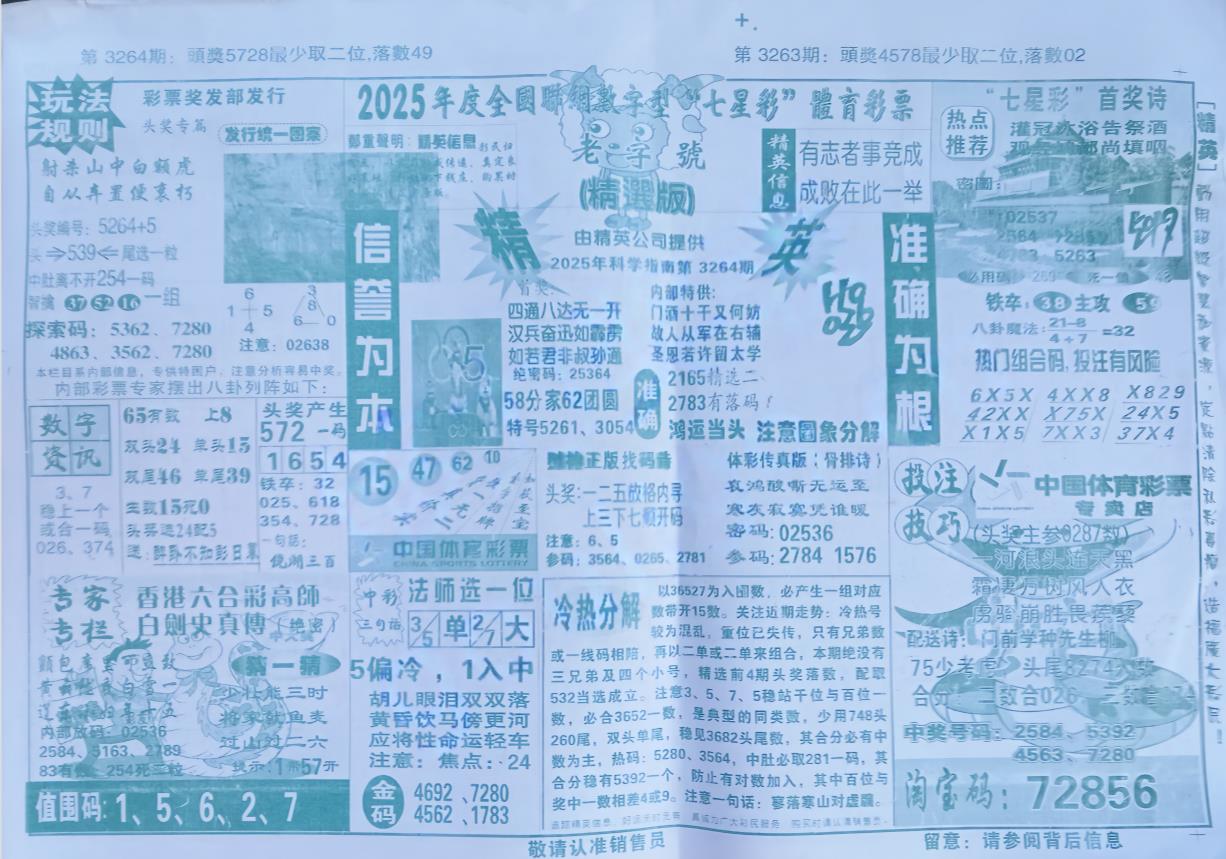 第 3264期：頭獎5728最少取二位,落數49
第 3263期：頭獎4578最少取二位,落數02
玩法
规则
彩票奖发部发行
头奖专篇
发行统一国家
射杀山中白额虎
自从弃置便衰朽
头奖编号：5264+5
头⇒539⇐尾选一粒
中肚离不开254一码
智擒 37 52 16 一组
6
1 + 5
4
3
8
6 0
注意：02638
探索码：5362、7280
4863、3562、7280
本栏目系内部信息，专供特困户，注意分析容易中奖。
内部彩票专家摆出八卦列阵如下：
2025年度全國聯網數字型“七星彩”體育彩票
鄭重聲明：精英信息
老字號
(精選版)
精英信息
有志者事竞成
成败在此一举
精 英
由精英公司提供
2025年科学指南第 3264期
信誉为本
准确为根
首奖：
四通八达无一开
汉兵奋迅如霹雳
如若君非叔孙通
绝密码：25364
58分家62团圆
特号5261、3054
内部特供：
门酒十千又何妨
故人从军在右辅
圣恩若许留太学
准确
2165精选二
2783有落码
鸿运当头 注意圖象分解
“七星彩”首奖诗
热点
推荐
密圖：
02537
4783 5263
铁卒：38 主攻
八卦魔法：21-8
4+7
=32
热门组合码,投注有风险
6X5X 4XX8 X829
42XX X75X 24X5
X1X5 7XX3 37X4
[精英]
数字
资讯
3、7
稳上一个
或合一码
026、374
65有数 上8
双头24 单头15
双尾46 单尾39
主数15死0
头奖送24配5
头奖产生
572 一码
1 6 5 4
铁卒：32
025、618
354、728
一句话：
镜湖三百
15 47 62 10
中国体育彩票
CHINA SPORTS LOTTERY
正版找码
头奖：一二五放格内寻
上三下七顿开码
注意：6、5
参码：3564、0265、2781
体彩传真版（骨排诗）
哀鸿酸嘶无运至
寒灰寂寞凭谁暖
密码：02536
参码：2784 1576
投注
技巧
中国体育彩票
专卖店
(头奖主参0287数)
河浪头连天黑
虏骑崩胜畏蒺藜
配送诗：门前学种先生柳
中奖号码：2584、5392
4563、7280
淘宝码：72856
专家
专栏
香港六合彩高師
白劍史真傳（绝密）
猜一猜
少壮能三时
将家就鱼麦
过山过二六
内部放码：02536
2584、5163、2789
254死三粒
值围码：1、5、6、2、7
中彩
三句话
法师选一位
3/5 单 2/7 大
5偏冷，1入中
胡儿眼泪双双落
黄昏饮马傍更河
应将性命运轻车
注意：焦点：24
金码
4692 、7280
4562 、1783
冷热分解
以36527为入圈数，必产生一组对应
数带开15数。关注近期走势：冷热号
较为混乱，重位已失传，只有兄弟数
或一线码相陪，再以二单或二单来组合，本期绝没有
三兄弟及四个小号，精选前4期头奖落数，配取
532当选成立。注意3、5、7、5稳站千位与百位一
数，必合3652一数，是典型的同类数，少用748头
260尾，双头单尾，稳见3682头尾数，其合分必有中
数为主，热码：5280、3564，中肚必取281一码，其
合分稳有5392一个，防止有对数加入，其中百位与
奖中一数相差4或9。注意一句话：寥落寒山对虚牖。
敬请认准销售员
留意：请参阅背后信息